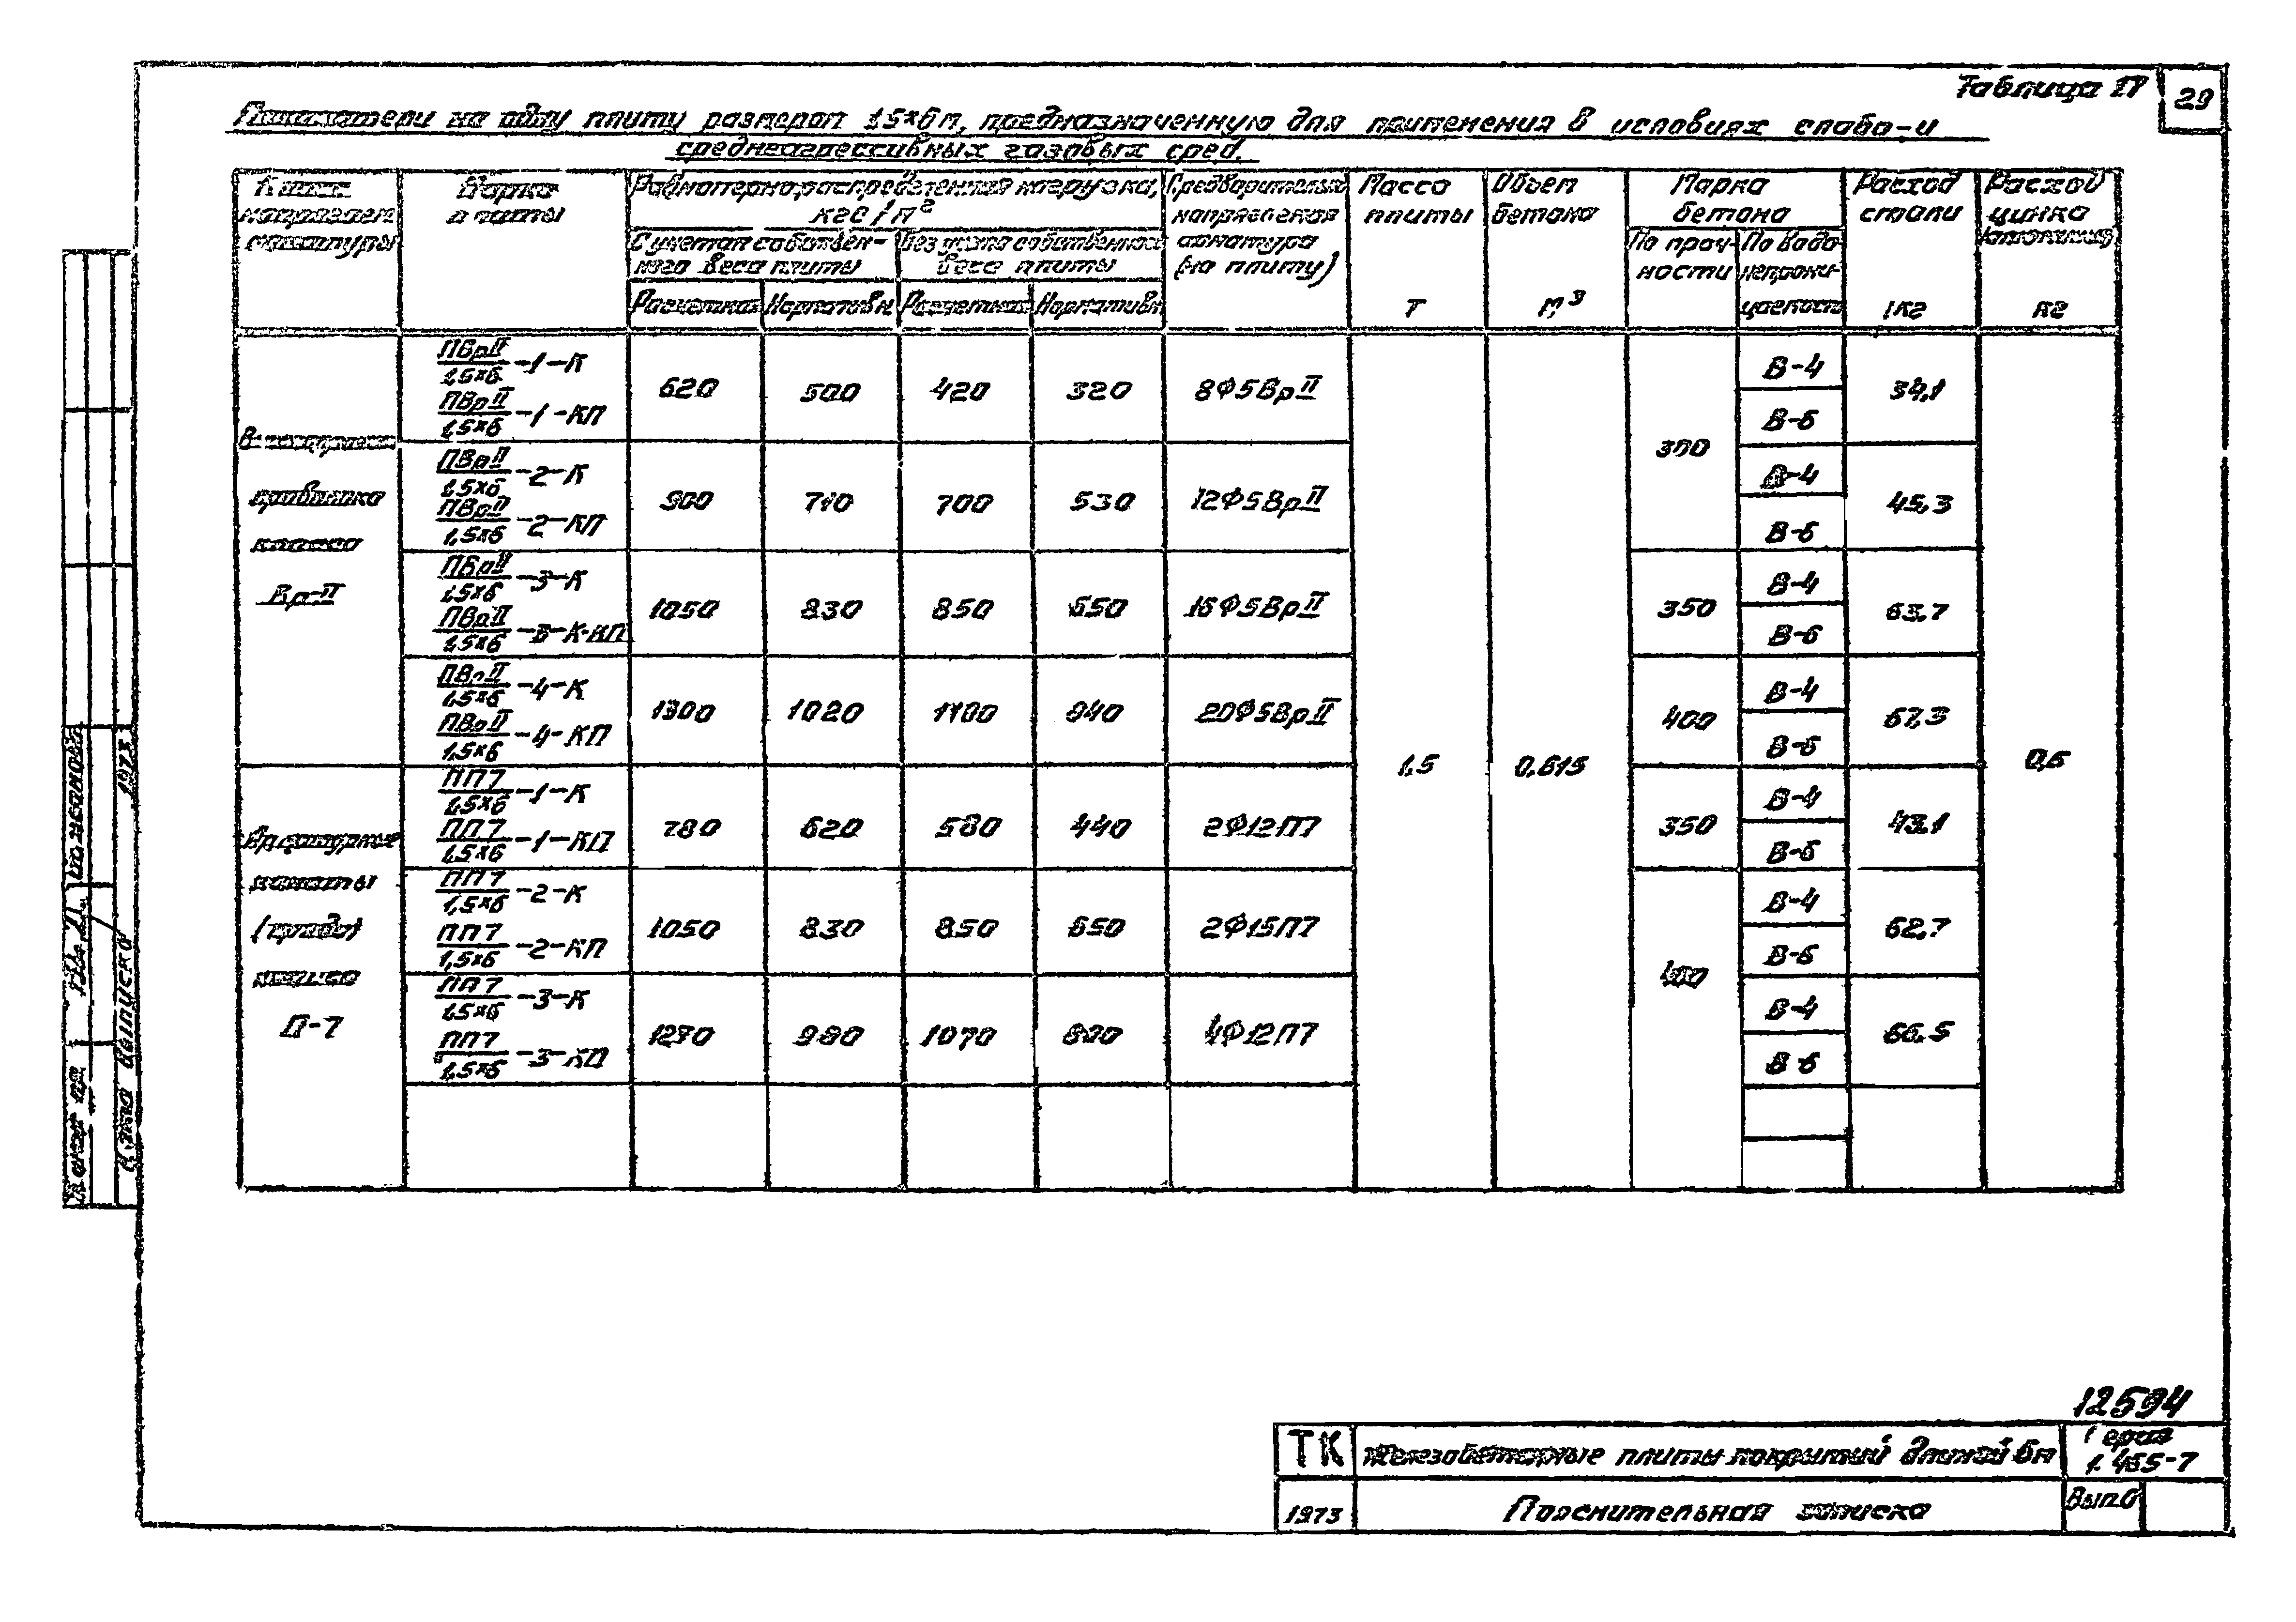 Таблица 17
29
Показатели на одну плиту размером 1,5×6м, предназначенную для применения в условиях слабо-и
среднеагрессивных газовых сред.
Класс напрягаем. арматуры
Марка плиты
Равномерно распределенная нагрузка, кгс/м²
С учетом собствен-ного веса плиты
Без учета собственного веса плиты
Расчетная
Нормативн.
Расчетная
Нормативн.
Предварительно напряженная арматура (на плиту)
Масса плиты Т
Объем бетона м³
Марка бетона
По проч-ности
По водо-непрони-цаемости
Расход стали кг
Расход цинка (алюминия) кг
Высокопрочная проволока класса Вр-II
ПВрII/1,5×6 -1-К
ПВрII/1,5×6 -1-КП
620 500 420 320 8Ф5ВрII 300 В-4 В-6 34,1
ПВрII/1,5×6 -2-К
ПВрII/1,5×6 -2-КП
900 710 700 530 12Ф5ВрII В-4 В-6 45,3
ПВрII/1,5×6 -3-К
ПВрII/1,5×6 -3-К-КП
1050 830 850 650 16Ф5ВрII 350 В-4 В-6 63,7
ПВрII/1,5×6 -4-К
ПВрII/1,5×6 -4-КП
1300 1020 1100 840 20Ф5ВрII 400 В-4 В-6 67,3
1,5 0,615 0,6
Арматурные канаты (пряди) класса П-7
ПП7/1,5×6 -1-К
ПП7/1,5×6 -1-КП
780 620 580 440 2Ф12П7 350 В-4 В-6 43,1
ПП7/1,5×6 -2-К
ПП7/1,5×6 -2-КП
1050 830 850 650 2Ф15П7 400 В-4 В-6 62,7
ПП7/1,5×6 -3-К
ПП7/1,5×6 -3-КП
1270 980 1070 800 4Ф12П7 В-4 В-6 66,5
1973
Дата выпуска
12594
ТК
Железобетонные плиты покрытий длиной 6м
Серия 1.465-7
1973
Пояснительная записка
Вып.6